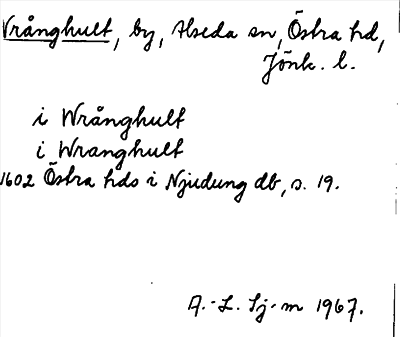 Vrånghult, by, Alseda sn, Östra hd,
Jönk. l.
i Wrånghult
i Wranghult
1602 Östra hds i Njudung db, s. 19.
A.-L. Sj-m 1967.